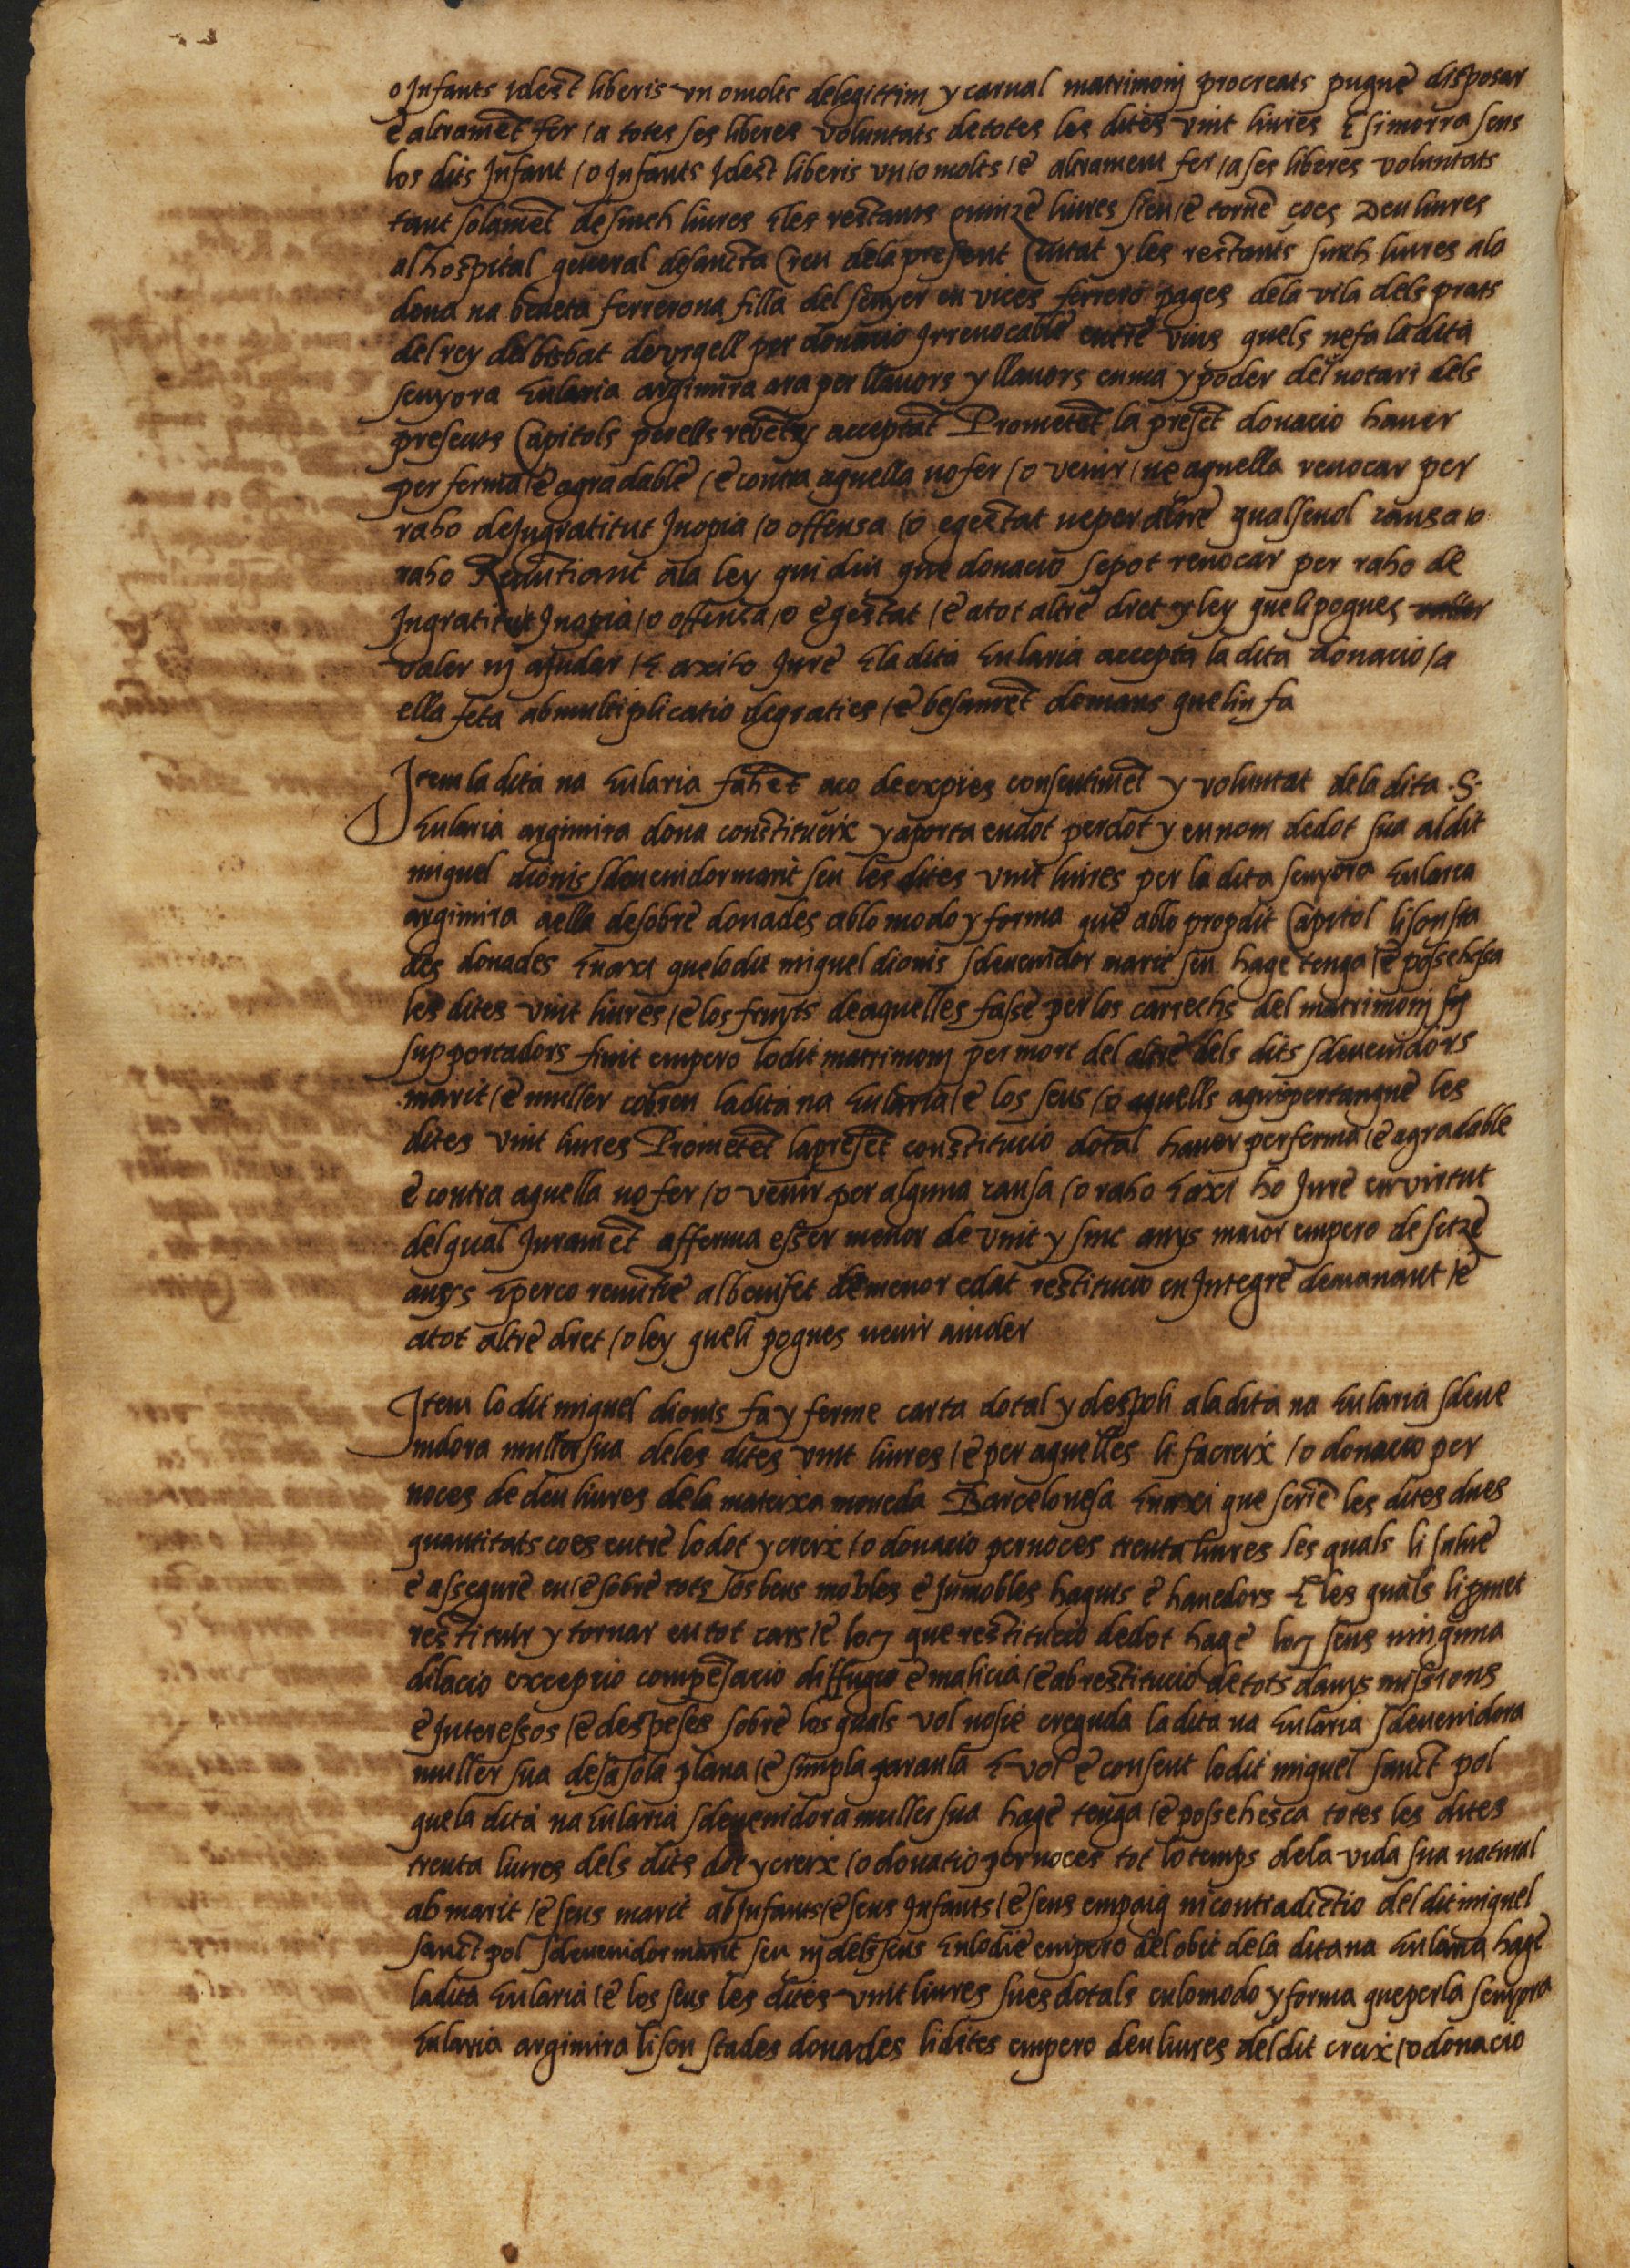 o Infants idest liberis un o molts de legittim y carnal matrimonj procreats pugue disposar
e altrament fer / a totes ses liberes voluntats de totes les dites vint liures E si morra sens
los dits Infant / o Infants Idest liberis un / o molts / e altrament fer / a ses liberes voluntats
tant solament de sinch liures E les restants quinze liures sien / e torne çoes Deu liures
al hospital general de sancta Creu dela present Ciutat y les restants sinch liures ala
dona na beneta ferrerona filla del senyer en vices ferrero pages dela vila dels prats
del rey del bisbat de urgell per donacio Irreuocable entre vius quels ne fa la dita
senyora Eularia argimira ara per llauors y llauors en ma y poder del notari dels
presents Capitols per ells rebets acceptat Prometet la preset donacio hauer
per ferma / e agradable / e contra aquella no fer / o venir / ne aquella reuocar per
raho de Ingratitut Inopia / o offensa / o egestat ne per altre qualseuol causa o
raho Renutiant ala ley qui diu que donacio se pot reuocar per raho de
Ingratitut Inopia / o offensa / o egestat / e a tot altre dret y ley que li pogues valler
valer nj ajudar / E axi ho Jure E la dita Eularia accepta la dita donacio / a
ella feta ab multiplicatio de graties / e besament de mans que lin fa
Item la dita na Eularia fahet aço de expres consentimet y voluntat dela dita .S.
Eularia argimira dona constitueix y aporta en dot per dot y en nom de dot sua al dit
miquel dionis sdeuenidor marit seu les dites vint liures per la dita senyora Eularia
argimira a ella desobre donades ab lo modo y forma que ab lo propdit Capitol li son sta
des donades En axi que lo dit miquel dionis sdeuenidor marit seu hage tenga / e possehesca
les dites vint liures / e los fruyts de aquelles fasse per los carrechs del matrimonj sy
supportadors finit empero lo dit matrimonj per mort del altre dels dits sdeuenidors
marit / e muller cobren la dita na Eularia / e los seus / o aquells aqui pertangue les
dites vint liures Prometet la preset constitucio dotal hauer per ferma / e agradable
e contra aquella no fer / o venir per alguna causa / o raho E axi ho Jure en virtut
del qual Jurament afferma esser menor de vint y sinc anys maior empero de setze
anys E per ço renutie al benifet de menor edat restitucio en Integre demanant / e
a tot altre dret / o ley que li pogues venir aiuder
Item lo dit miquel dionis fa y ferme carta dotal y despoli ala dita na Eularia sdeue
nidora muller sua deles dites vint liures / e per aquelles li fa creix / o donacio per
noces de deu liures dela mateixa moneda Barcelonesa En axi que serie les dites dues
quantitats coes entre lo dot y creix / o donacio per noces trenta liures les quals li salue
e assegure en / e sobre tots los bens mobles e Inmobles haguts e hauedors E les quals li pmet
restituir y tornar en tot cars / e loch que restitucio de dot hage loch sens ninguna
dilacio excepcio compesacio diffugio e malicia / e ab restitucio de tots danys missions
e Interessos / e despeses sobre los quals vol nosie creguda la dita na Eularia sdeuenidora
muller sua de sa sola plana / e simpla paraula E vol e consent lo dit miquel sanct pol
que la dita na Eularia sdeuenidora muller sua hage tenga / e possehesca totes les dites
trenta liures dels dits dot y creix / o donatio per noces tot lo temps dela vida sua natural
ab marit / e sens marit ab Infants / e sens Infants / e sens empaig ni contradictio del dit miquel
sanct pol sdeuenidor marit seu nj dels seus En lo die empero del obit dela dita na Eularia hage
la dita Eularia / e los seus les dites vint liures sues dotals en lo modo y forma que per la senyora
Eularia argimira li son stades donades li dites empero deu liures del dit creix / o donacio